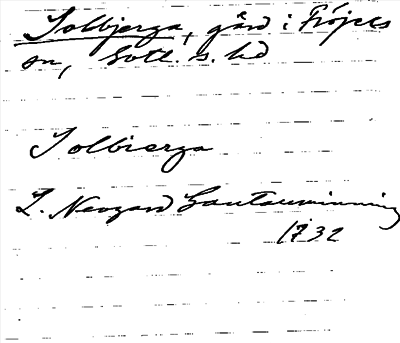 Solbjerga, gård i Fröjels
sn, Gotl. s. hd
Solbierga
L. Neogard Gautauminning
1732